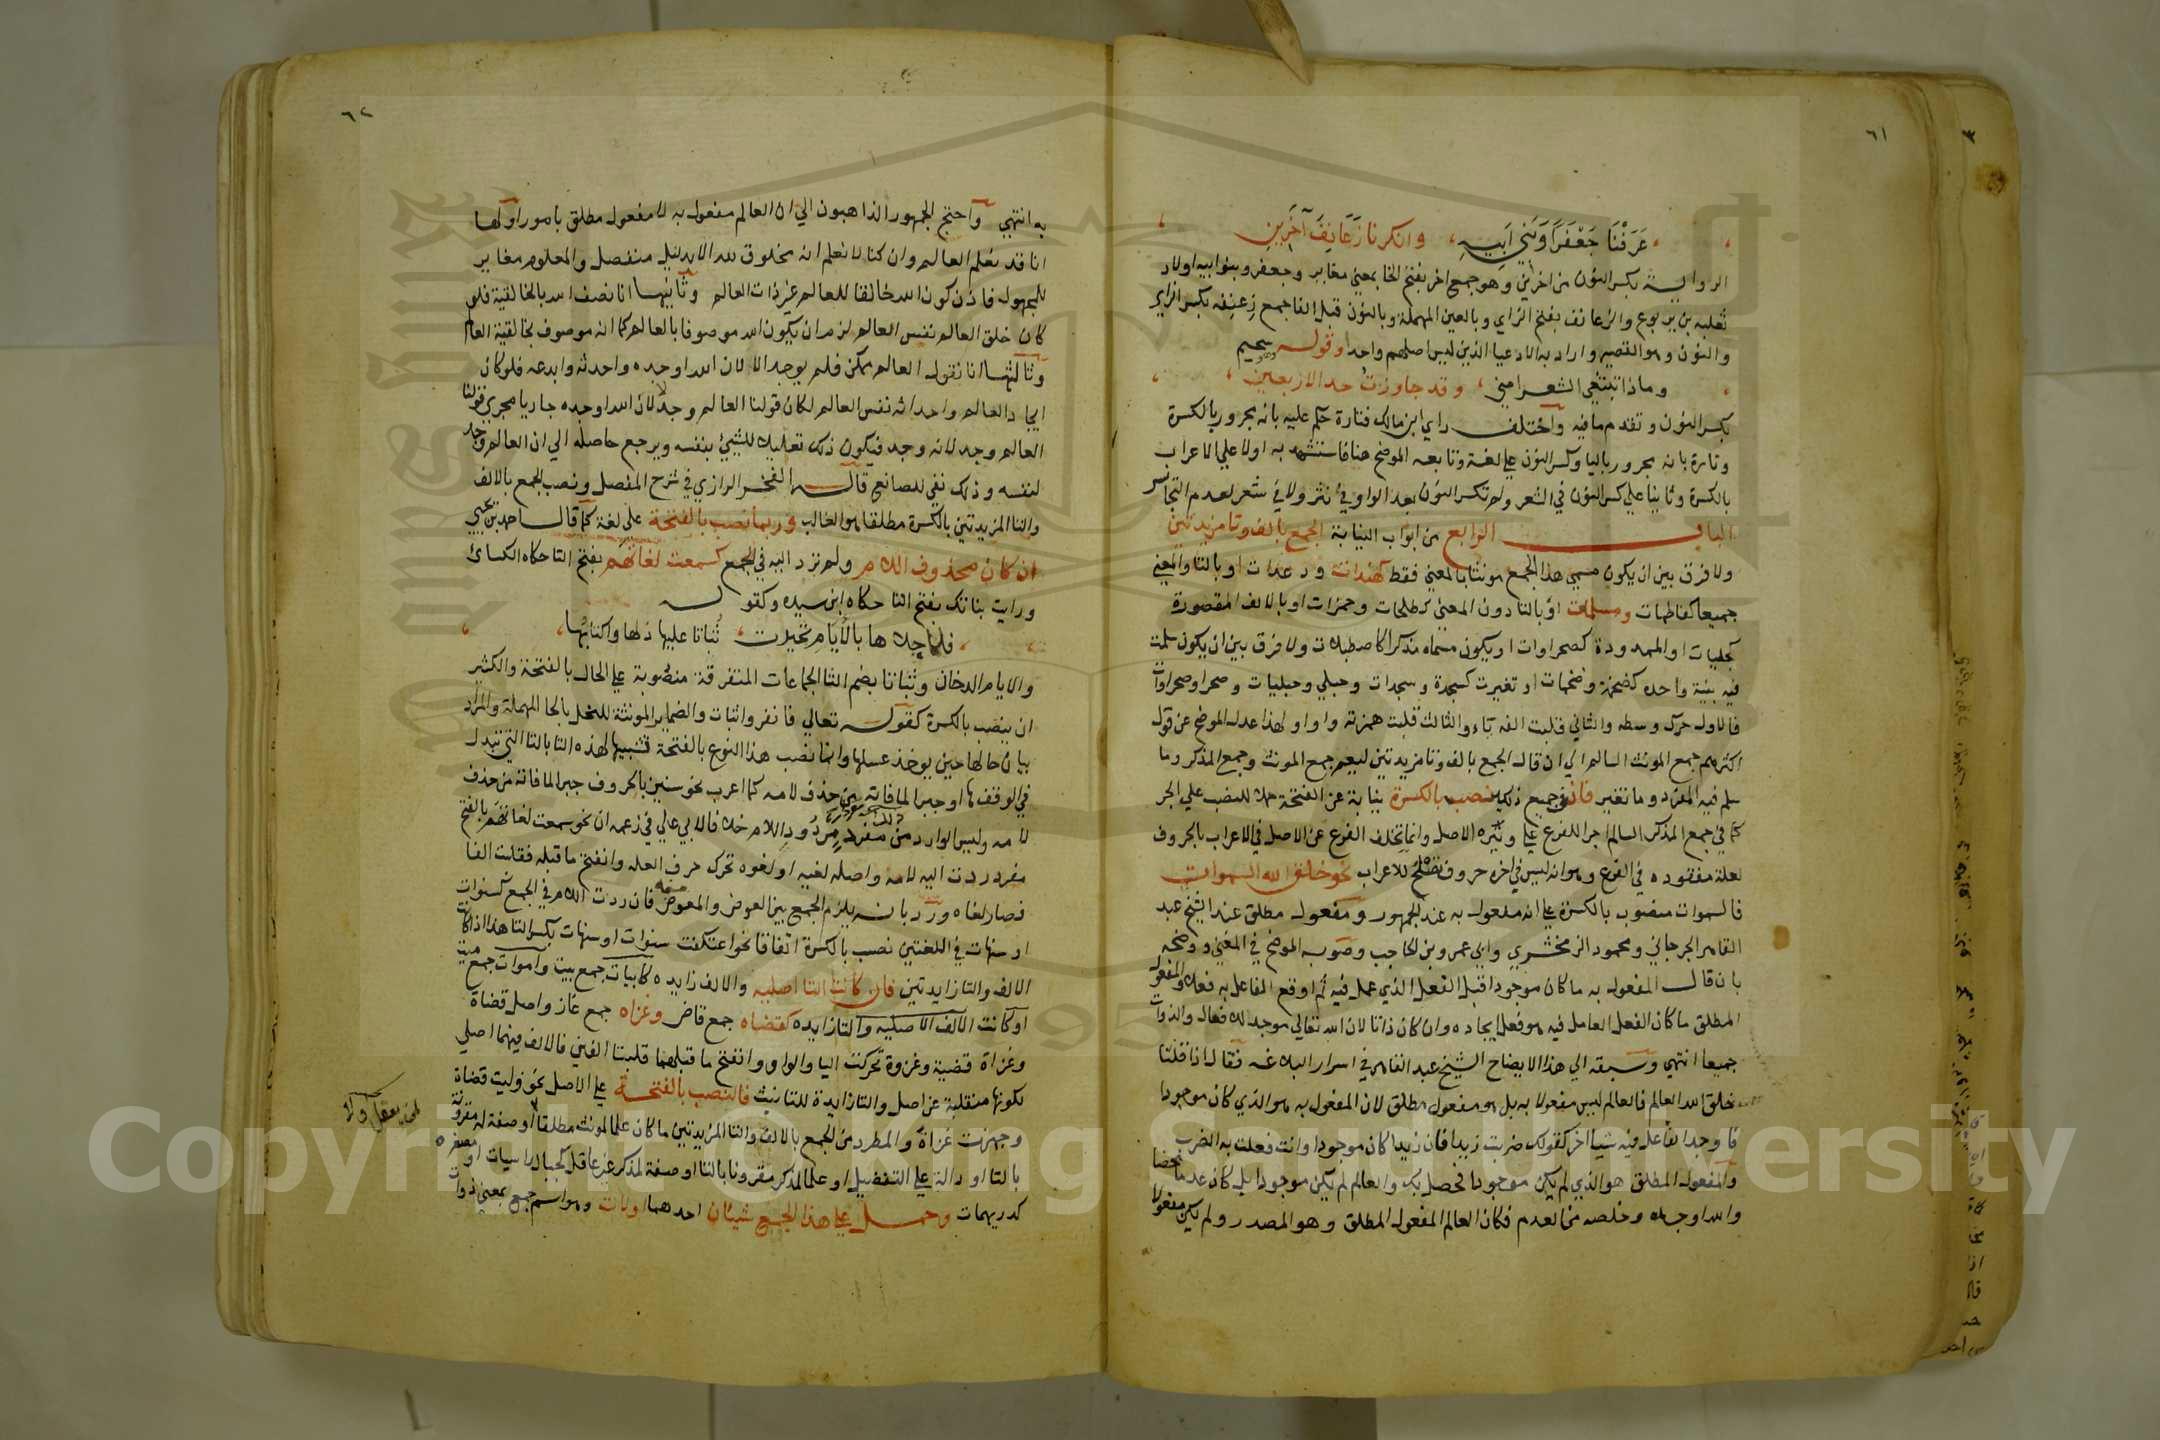 ٦١
عَرَفْنَا جَعْفَرًا وَبَنِي اَبِيهِ ، وانكرنا زَعَانِفَ آخَرِينِ
الرواية بكسر النون من اخرين وهو جمع اخر بفتح الخا بمعني مغاير وجعفر وبنوا ابيه اولاد
ثعلبه بن يربوع والزعانف بفتح الزاي وبالعين المهملة وبالنون قبل الفا جمع زِعنِفه بكسر الزاي
والنون وهو القصير واراد به الادعيا الذين ليس اصلهم واحدا وقوله سحيم
وماذا تبتغي الشعرا مني ، وقد جاوزت حد الاربعين
بكسر النون وتقدم ما فيه واختلف راي ابن مالك فتارة حكم عليه بانه مجرور بالكسرة
وتارة بانه مجرور باليا وكسر النون علي لغة وتابعه الموضح هنا فاستشهد به اولا علي الاعراب
بالكسرة وثانيا علي كسر النون في الشعر ولم تكسر النون بعد الواو في نثر ولا في شعر لعدم التجانس
الباب الرابع من ابواب النيابة الجمع بالف وتا مزيدتين
ولا فرق بين ان يكون مسمي هذا الجمع مونثا بالمعني فقط كهندات ودعدات او بالتا والمعني
جميعا كفاطمات ومسلمات او بالتا دون المعني كطلحات وحمزات او بالالف المقصورة
كحبليات او الممدودة كصحراوات او يكون مسماه مذكرا كاصطبلات ولا فرق بين ان يكون سلمت
فيه بنية واحده كضخمة وضخمات او تغيرت كسجدة وسجدات وحبلي وحبليات وصحرا وصحراوات
فالاول حرك وسطه والثاني قلبت الفه ياء والثالث قلبت همزته واوا ولهذا عدل الموضح عن قول
اكثرهم جمع المونث السالم الي ان قال الجمع بالف وتا مزيدتين ليعم جمع المونث وجمع المذكر وما
سلم فيه المفرد وما تغير فان جميع ذلك ينصب بالكسرة نيابة عن الفتحة حملا للنصب علي الجر
كما في جمع المذكر السالم اجرا للفرع علي وتيرة الاصل وانما تخلف الفرع عن الاصل في الاعراب بالحروف
لعلة مفقوده في الفرع وهو انه ليس في اخره حروف تصلح للاعراب نحو خلق الله السموات
فالسموات منصوب بالكسرة علي انه مفعول به عند الجمهور ومفعول مطلق عند الشيخ عبد
القاهر الجرجاني ومحمود الزمخشري وابي عمرو بن الحاجب وصوبه الموضح في المغني ووضحه
بان قال المفعول به ما كان موجودا قبل الفعل الذي عمل فيه ثم اوقع الفاعل به فعلا والمفعول
المطلق ما كان الفعل العامل فيه هو فعل ايجاده وان كان ذاتا لان الله تعالي موجد للافعال والذوات
جميعا انتهي وسبقه الي هذا الايضاح الشيخ عبد القاهر في اسرار البلاغه فقال اذا قلنا
خلق الله العالم فالعالم ليس مفعولا به بل هو مفعول مطلق لان المفعول به هو الذي كان موجودا
فاوجد الفاعل فيه شيا اخر كقولك ضربت زيدا فان زيدا كان موجودا وانت فعلت به الضرب
والمفعول المطلق هو الذي لم يكن موجودا فحصل بك والعالم لم يكن موجودا بل كان عدما محضا
والله اوجده وخلصه من العدم فكان العالم المفعول المطلق وهو المصدر ولم يكن مفعولا
٦٢
به انتهي واحتج الجمهور الذاهبون الي ان العالم مفعول به لا مفعول مطلق بامور اولها
انا قد نعلم العالم وان كنا لا نعلم انه مخلوق لله الا بدليل منفصل والمعلوم مغاير
للمجهول فاذن كون الله خالقا للعالم غير ذات العالم وثانيها انا نصف الله بالخالقية فلو
كان خلق العالم نفس العالم لزم ان يكون الله موصوفا بالعالم كما انه موصوف بخالقية العالم
وثالثها انا نقول العالم ممكن فلم يوجد الا لان الله اوجده واحدثه وابدعه فلو كان
ايجاد العالم واحداثه نفس العالم لكان قولنا العالم وجد لان الله اوجده جاريا مجري قولنا
العالم وجد لانه وجد فيكون ذلك تعليلا للشيئ بنفسه ويرجع حاصله الي ان العالم وجد
لنفسه وذلك نفي للصانع قال الفخر الرازي في شرح المفصل ونصب الجمع بالالف
والتا المزيدتين بالكسرة مطلقا هو الغالب وربما نصب بالفتحة علي لغة كما قال احمد بن يحيي
ان كان محذوف اللام ولم ترد اليه في الجمع كسمعت لغاتهم بفتح التا حكاه الكسائ
ورايت بناتك بفتح التا حكاه ابن سيده وكقوله
فلما جلاها بالأيام تحيرت ، ثُباتا عليها ذلها واكتئابُها
والايام الدخان وثباتا بضم الثا الجماعات المتفرقة منصوبة علي الحال بالفتحة والكثير
ان ينصب بالكسرة كقوله تعالي فانفروا ثبات والضماير المونثة للنحل بالحا المهملة والمراد
بيان حالها حين يوخذ عسلها وانما نصب هذا النوع بالفتحة تشبيها لهذه التا بالتا التي تبدل
في الوقف ها او جبرا لما فاته من حذف لامه كما اعرب نحو سنين بالحروف جبرا لما فاته من حذف
لامه وليس الوارد من ذلك مفرد مردود اللام خلافا لابي علي في زعمه ان نحو سمعت لغاتهم بالفتح
مفرد ردت اليه لامه واصله لغيه او لغوه تحرك حرف العله وانفتح ما قبله فقلبت الفا
فصار لغاه ورد بانه يلزم الجمع بين العوض والمعوض منه فان ردت اللام في الجمع كسنوات
او سنهات في اللغتين نصب بالكسرة اتفاقا نحو اعتكفت سنوات او سنهات بكسر التا هذا اذا كانت
الالف والتا زايدتين فان كانت التا اصليه والالف زايده كابيات جمع بيت واموات جمع ميت
او كانت الالف الاصليه والتا زايده كقضاه جمع قاض وغزاه جمع غاز واصل قضاة
وغزاة قضية وغزوة تحركت اليا والواو وانفتح ما قبلهما قلبتا الفين فالالف فيهما اصلي
لكونها منقلبة عن اصل والتا زايدة للتانيث فالنصب بالفتحة علي الاصل نحو وليت قضاة
وجهزت غزاة والمطرد من الجمع بالالف والتا المزيدتين ما كان علما لمونث مطلقا او صفة له مقرونة
بالتا او دالة علي التفضيل او علما لمذكر مقرونا بالتا او صفة لمذكر غير عاقل كجبال راسيات او مصغره
كدريهمات وحمل علي هذا الجمع شيئان احدهما اولات وهو اسم جمع بمعني ذوات
لمن يعقل اولا